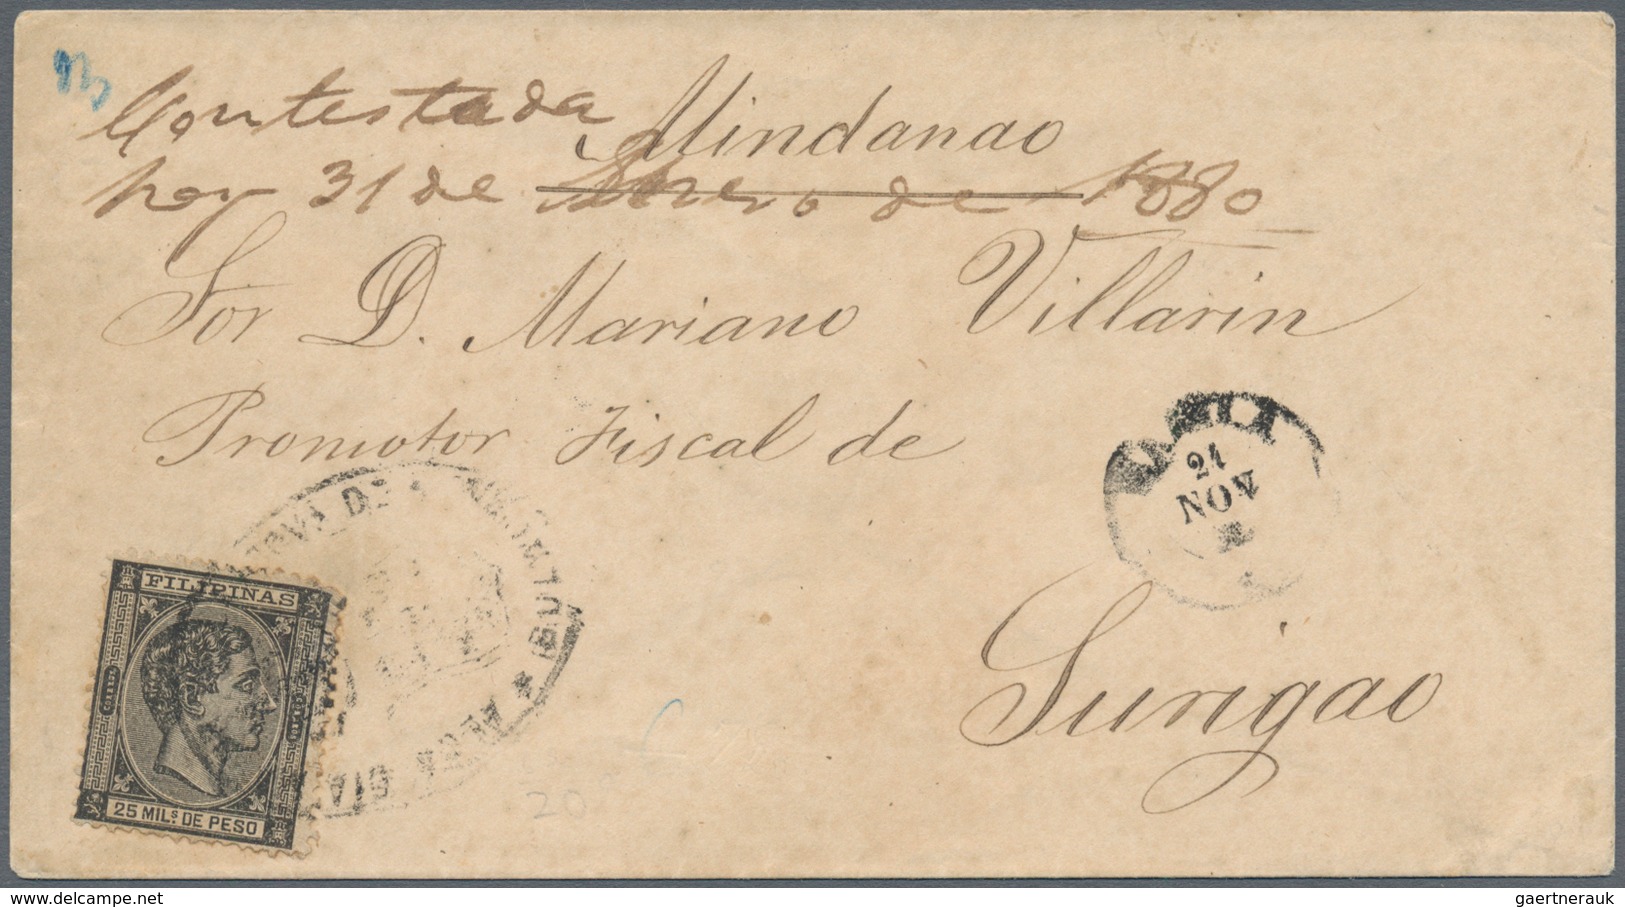 Contestada
Mindanao
hoy 31 de Enero de 1880
Sor D. Mariano Villarin
Promotor Fiscal de
Surigao
24
NOV
FILIPINAS
25 MILS. DE PESO
20
gaertnerauk